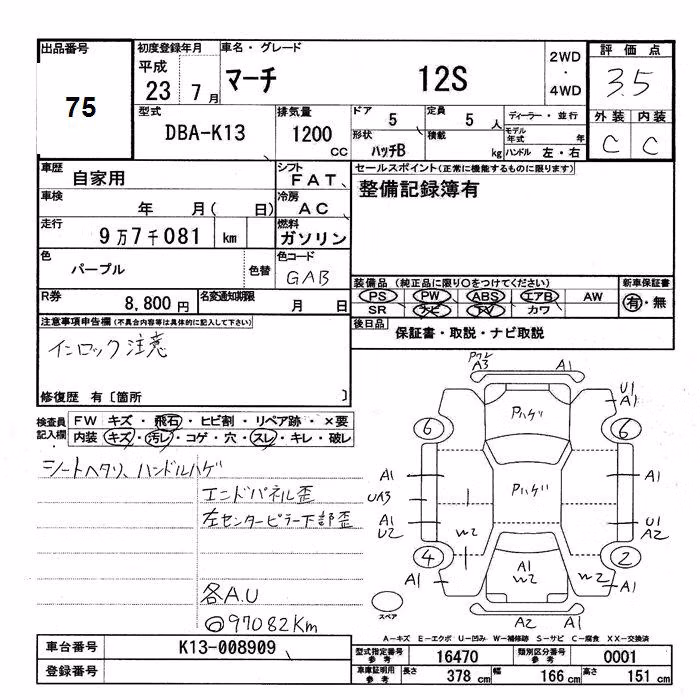 出品番号
75
初度登録年月
平成
23 7月
車名・グレード
マーチ 12S
2WD
・
4WD
評価点
3.5
外装 内装
C C
型式
DBA-K13
排気量
1200
CC
ドア
5
定員
5 人
形状
ハッチB
積載
kg
ディーラー・並行
モデル年式 年
ハンドル 左・右
車歴
自家用
シフト
FAT
車検
年 月( 日)
冷房
AC
走行
9万7千081 km
燃料
ガソリン
色
パープル
色替
色コード
GAB
R券
8,800円
名変通知期限
月 日
セールスポイント(正常に機能するものに限ります)
整備記録簿有
装備品 (純正品に限り〇をつけてください)
PS PW ABS エアB AW
SR ナビ TV カワ
新車保証書
有・無
後日品
保証書・取説・ナビ取説
注意事項申告欄(不具合内容等は具体的に記入して下さい)
インロック注意
修復歴 有〔箇所 〕
検査員記入欄
FW キズ・飛石・ヒビ割・リペア跡・×要
内装 キズ・汚レ・コゲ・穴・スレ・キレ・破レ
シートヘタリ、ハンドルハゲ
エンドパネル歪
左センターピラー下部歪
各A.U
◎97082Km
Pクレ
A3 A1
U1
A1
6 Pハゲ 6
A1 Pハゲ A1
UA3
A1 U1
U2 W2 A2
4 A1 2
A1 W2 W2 A1
スペア
A2 A1
A-キズ E-エクボ U-凹み W-補修跡 S-サビ C-腐食 XX-交換済
車台番号
K13-008909
登録番号
型式指定番号
参考
16470
類別区分番号
参考
0001
車庫証明用
参考
長さ 378 cm 幅 166 cm 高さ 151 cm